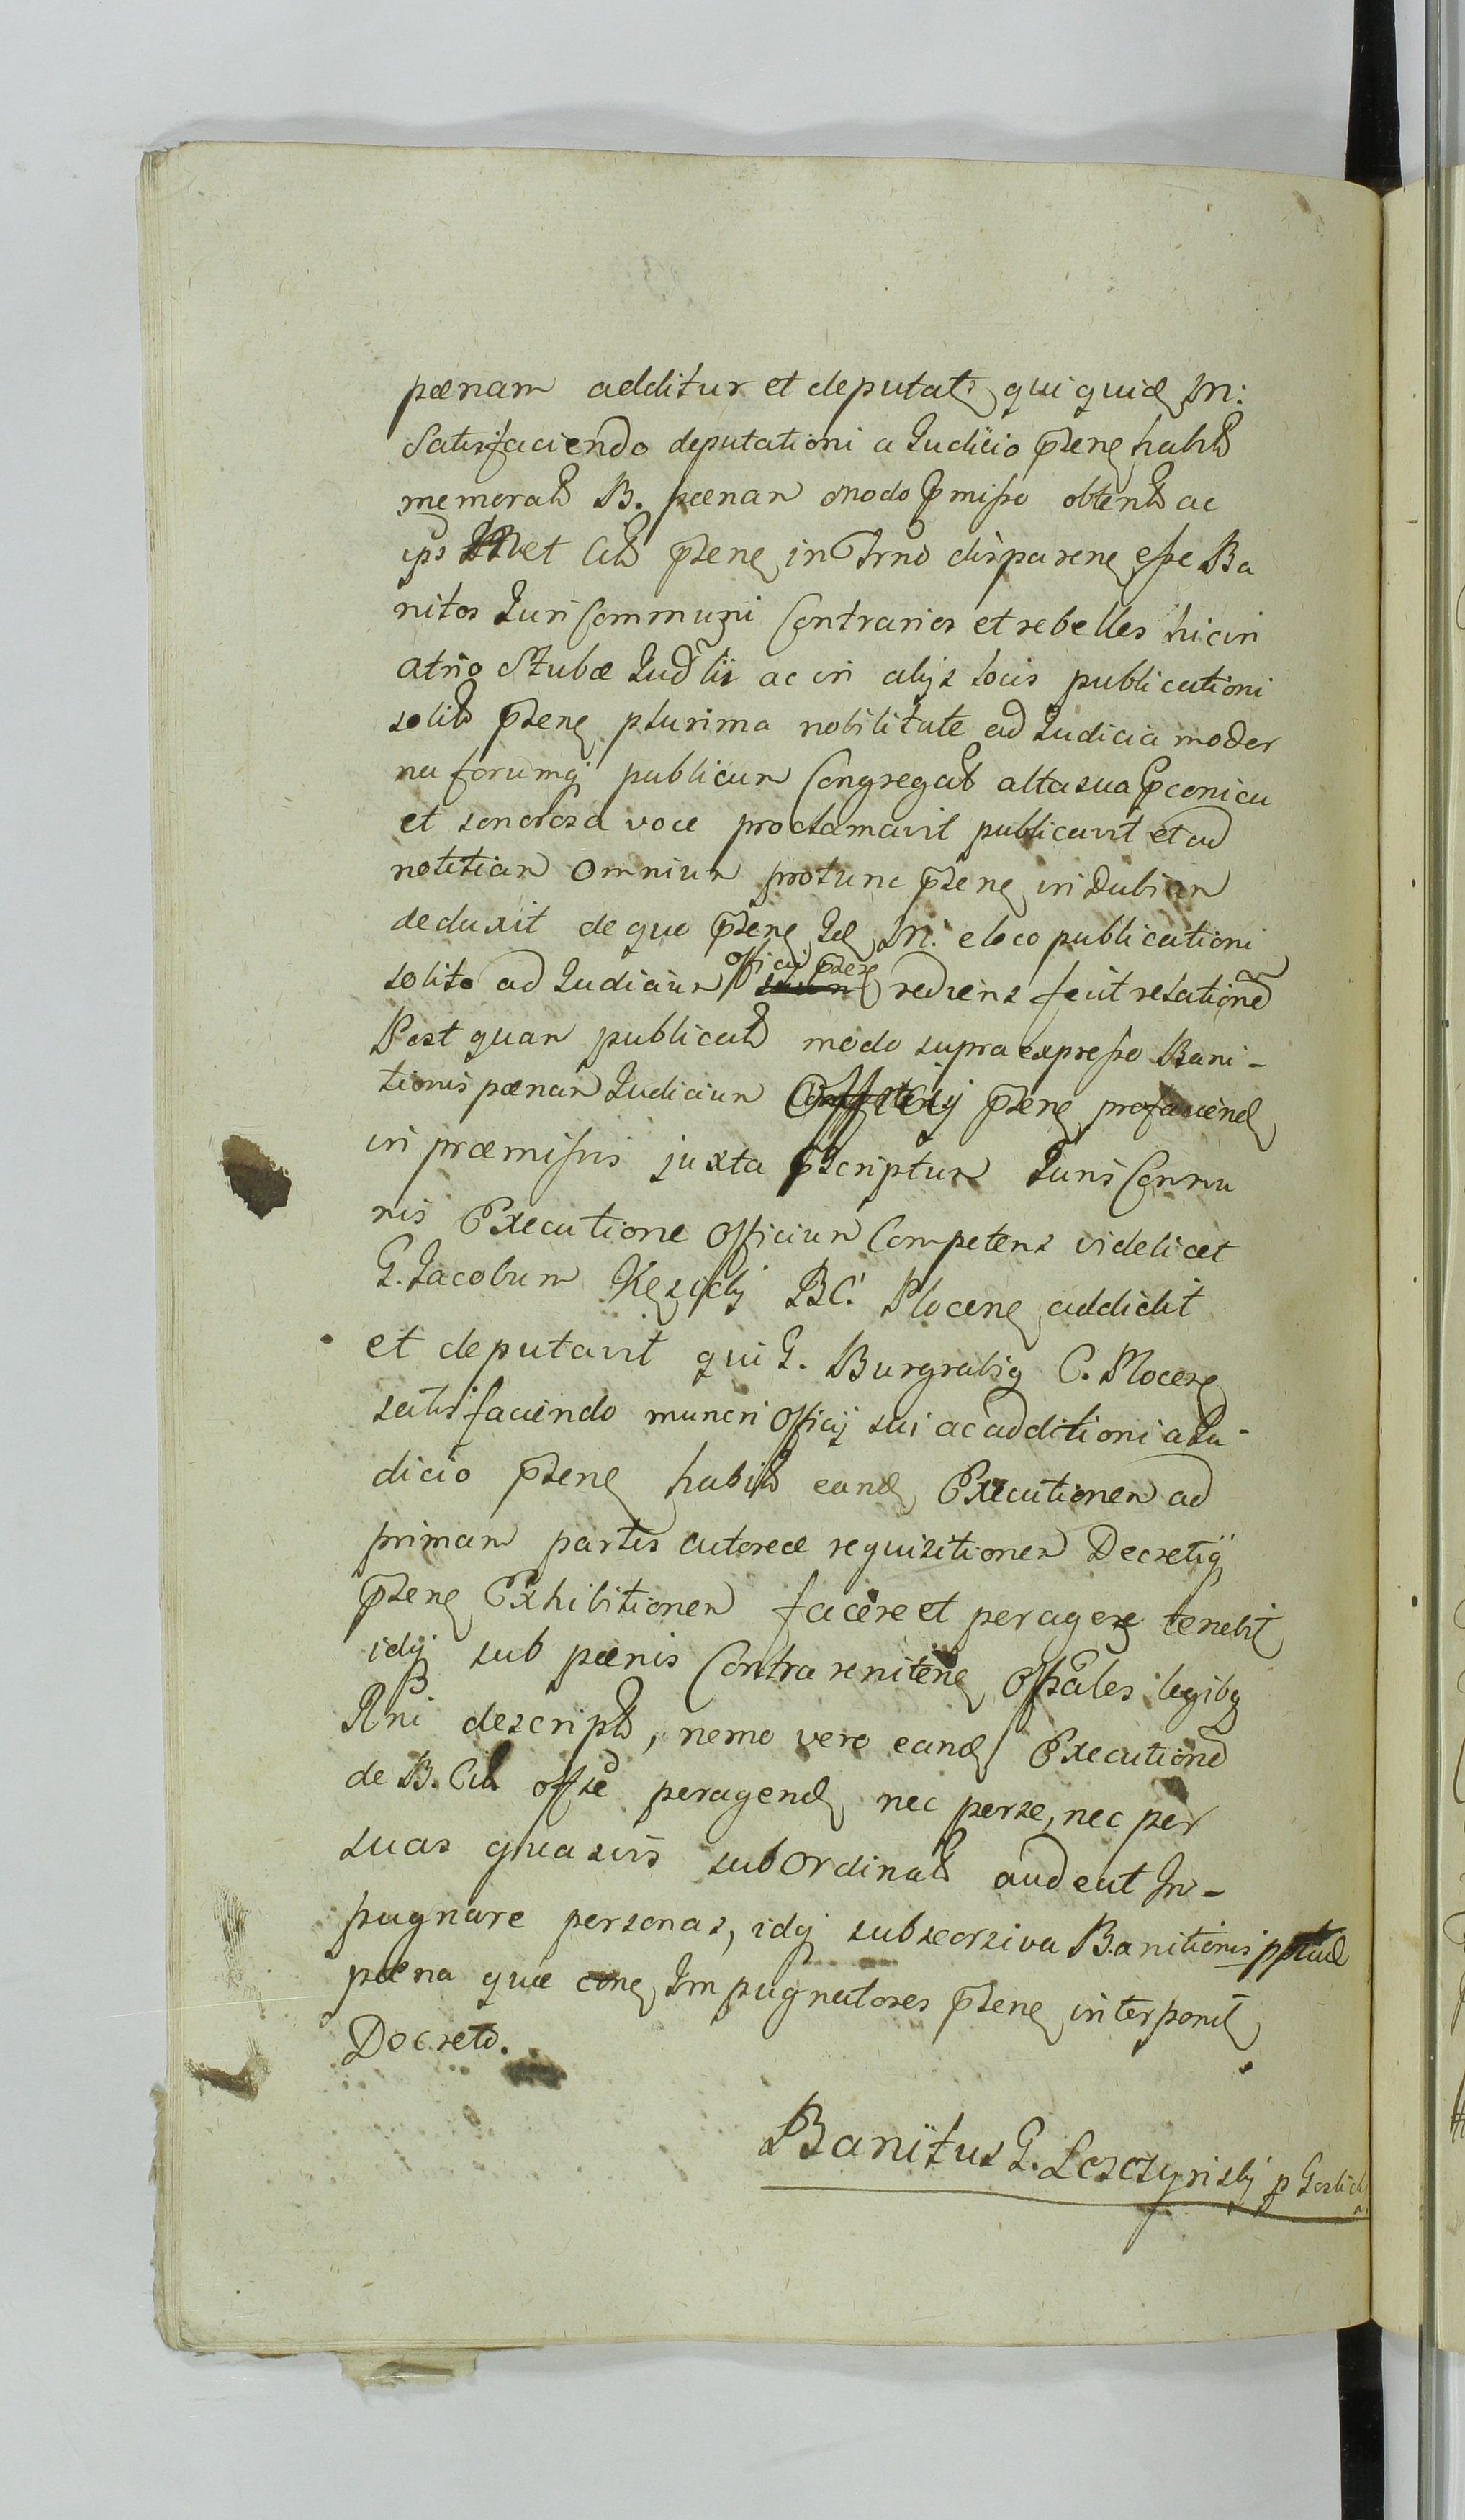 pœnam additur et deputat, qui quid, M:
Satisfaciendo deputationi a Judicio pſen, habit
memorat B. pœnam modo pmiſso obtent ac
ips et Cit pſen, in Trno disparen, eſse Ba
nitos Juri Communi Contrarios et rebelles hic in
atrio Stubæ Judlii ac in alijs locis publicationi
solit pſen, plurima nobilitate ad Judicia moder
na forumq publicum Congregat alta sua pconica
et sonorosa voce proclamavit publicavit et ad
notitiam omnium protunc pſen, indubiam
deduxit de quo pſen, Id, M. e loco publicationi
officij pſen,
solito ad Judicium rediens fecit relationē
Post quam publicat modo supra expreſso Bani-
tionis pœnam Judicium Officij pſen, profaciend,
in præmiſsis juxta pſcriptum Juris Commu
nis Executione officium Competens videlicet
G. Jacobum BC. Plocen, addidit
et deputavit qui G. Burgrabiq C. Plocen,
satisfaciendo muneri officij sui ac additioni a Ju-
dicio pſen, habit eand, Executionem ad
primam partis actoreæ requisitionem Decretiq
pſen, Exhibitionem facere et peragere tenebit,
idq sub pœnis Contra reniten, Offales legibq
Rni descript, nemo vero eand, Executionē
de B. Cit offſe peragend, nec per se, nec per
suas quasvis subordinat audeat Im-
pugnare personas, idq sub seorsiva Banitionis pptuæ
pœna quæ con, Impugnatores pſen, interponit,
Decreto.
Banitus G. Leszczynskj p